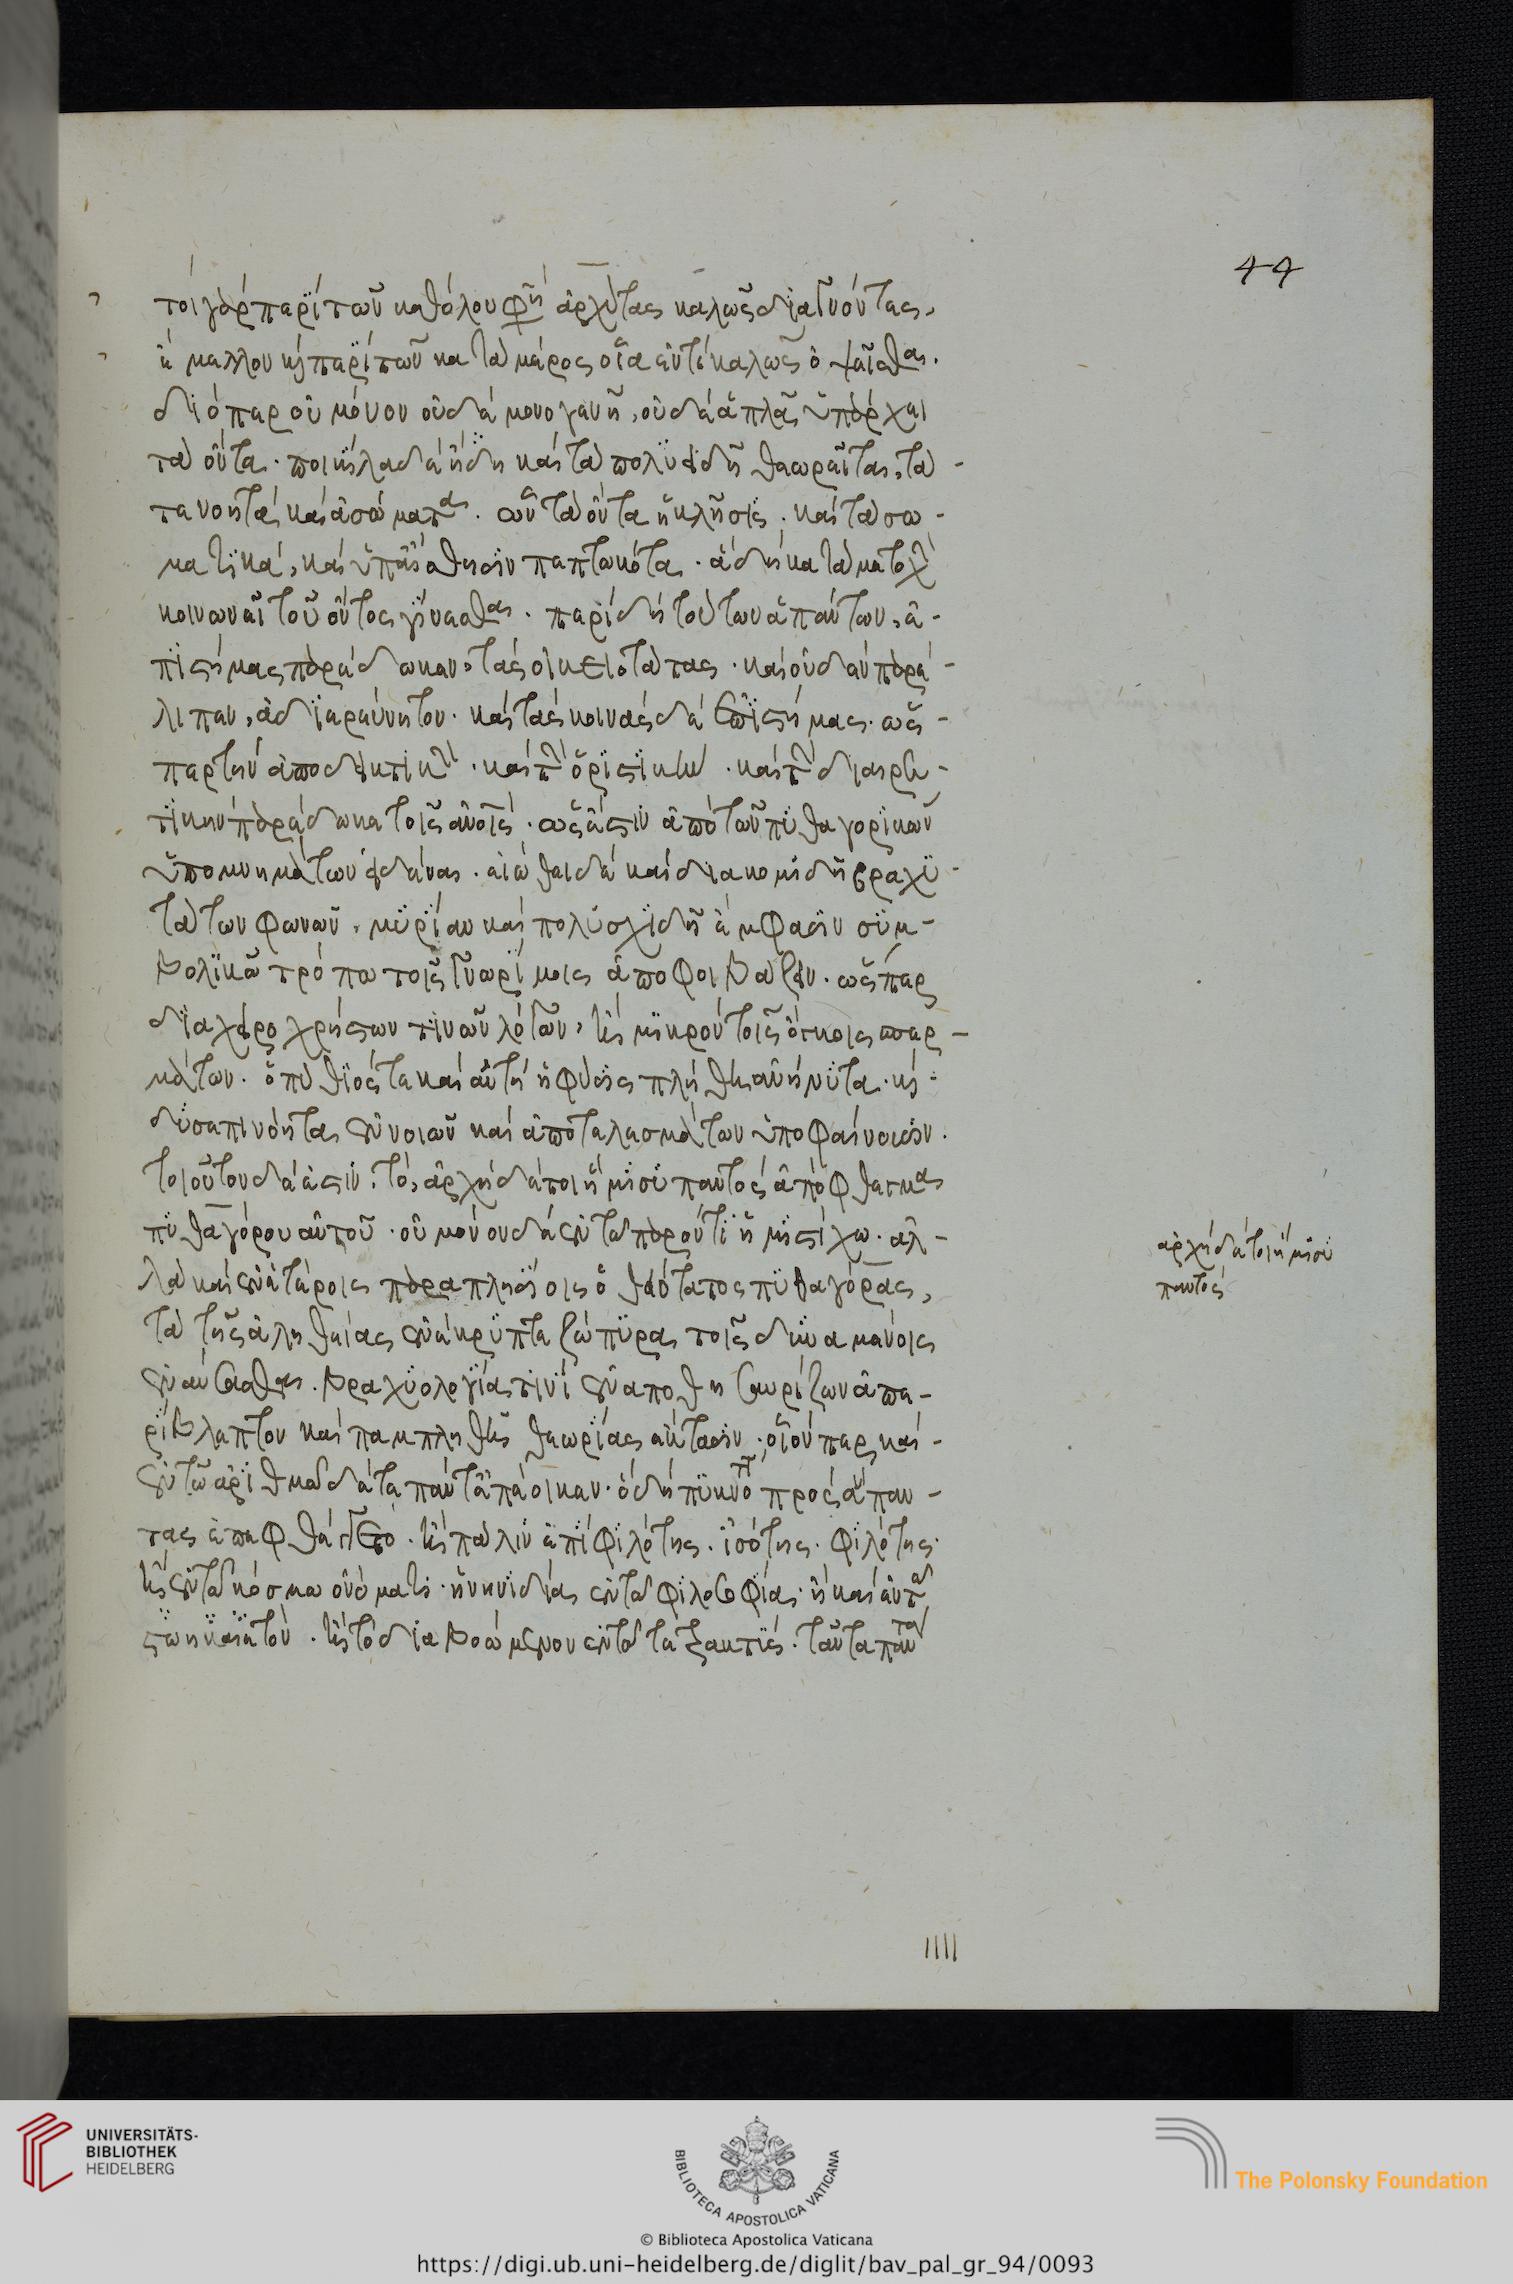 44
τοὶ γὰρ περὶ τῶν καθόλου φησὶ ἀρχύτας καλῶς διαγνόντες,
ἔμελλον καὶ περὶ τῶν κατὰ μέρος οἷα ἐντὶ καλῶς ὀψεῖσθαι.
διόπερ οὐ μόνον οὐδὲ μονογενῆ, οὐδὲ ἁπλᾶ ὑπάρχει
τὰ ὄντα· ποικίλα δὲ ἤδη καὶ τὰ πολυειδῆ θεωρεῖται, τά -
τε νοητὰ καὶ ἀσώματα. ὧν τὰ ὄντα ἡ κλῆσις. καὶ τὰ σω -
ματικά, καὶ ὑπ' αἴσθησιν πεπτωκότα. ἃ δὴ κατὰ μετοχὴ
κοινωνεῖ τοῦ ὄντος γίνεσθαι. περὶ δὴ τούτων ἁπάντων, ἐ -
πιστήμας παρέδωκεν, τὰς οἰκειοτάτας. καὶ οὐδὲν παρέ -
λιπεν, ἀδιερεύνητον. καὶ τὰς κοινὰς δὲ ἐπιστήμας. ὥσ -
περ τὴν ἀποδεικτικὴν. καὶ τὴν ὁριστικὴν. καὶ τὴν διαιρε -
τικὴν παρέδωκε τοῖς ἀνοις. ὥς ἐστιν ἀπὸ τῶν πυθαγορικῶν
ὑπομνημάτων εἰδέναι. εἰώθει δὲ καὶ διακομιδῆ βραχυ -
τάτων φωνῶν, μυρίαν καὶ πολυσχιδῆ ἔμφασιν συμ -
βολικῶ τρόπω τοῖς γνωρίμοις ἀποφοιβάζειν. ὥσπερ
διαχειροχρήστων τινῶν λόγων, ἢ μικροῦ τοῖς ὄγκοις σπερ -
μάτων. ὁ πύθιός τε καὶ αὐτὴ ἡ φύσις πλήθη ἀνήνυτα. καὶ
δυσεπινόητα ἐννοιῶν καὶ ἀποτελεσμάτων ὑποφαίνουσιν.
τοιοῦτον δέ ἐστιν. τό, ἀρχὴ δέ τοι ἥμισυ παντὸς ἀπόφθεγμα
πυθαγόρου αὐτοῦ. οὐ μόνον δὲ ἐν τῶ παρόντι ἡμιστίχω. ἀλ -
λὰ καὶ ἐν ἑτέροις παραπλησίοις ὁ θειότατος πυθαγόρας,
τὰ τῆς ἀληθείας ἐνέκρυπτε ζώπυρα τοῖς δυναμένοις
ἐναύσασθαι. βραχυολογία τινὶ ἐναποθησαυρίζων ἀπε -
ρίβλεπτον καὶ παμπληθῆ θεωρίας ἔκτασιν. οἷόν περ καὶ -
ἐν τῶ ἀριθμῶ δέ τε πάντ' ἐπέοικεν. ὃ δὴ πυκνότ πρὸς ἅπαν -
τας ἀπεφθέγγετο. ἢ πάλιν ἐπὶ φιλότης. ἰσότης. φιλότης.
ἢ ἐν τῶ κόσμω ὀνόματι. ἢ νὴ δία ἐν τῶ φιλοσοφία. ἢ καὶ ἐν τῶ
ἢ τὸ διαβοώμενον ἐν τῶ τετρακτύς. ταῦτα πάντα
ἀρχὴ δέ τοι ἥμισυ
παντός
UNIVERSITÄTS-
BIBLIOTHEK
HEIDELBERG
BIBLIOTECA APOSTOLICA VATICANA
The Polonsky Foundation
© Biblioteca Apostolica Vaticana
https://digi.ub.uni-heidelberg.de/diglit/bav_pal_gr_94/0093